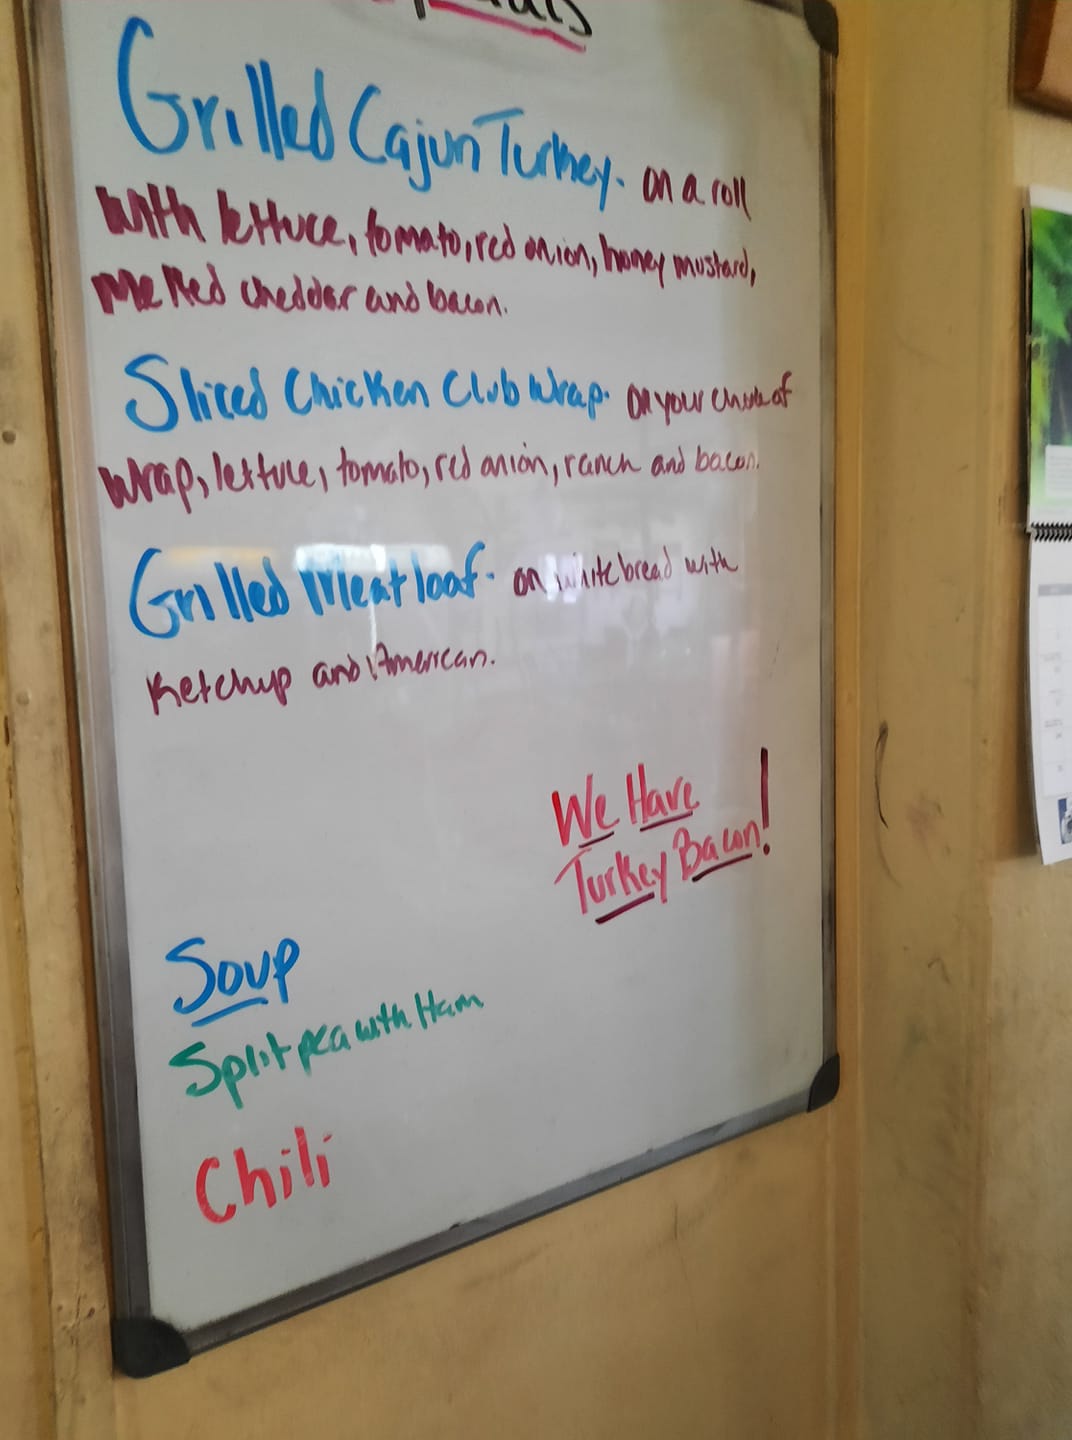 Grilled Cajun Turkey. on a roll
with lettuce, tomato, red onion, honey mustard,
melted cheddar and bacon.
Sliced Chicken Club Wrap. on your choice of
wrap, lettuce, tomato, red onion, ranch and bacon.
Grilled Meatloaf. on white bread with
Ketchup and American.
We Have
Turkey Bacon!
Soup
Split pea with Ham
Chili